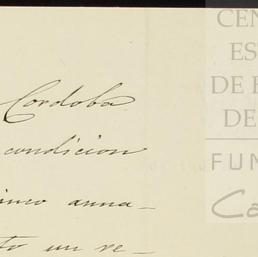 Cordoba
condicion
anua-
to un re-
CEN
ES
DE
DE
FUN
Ca